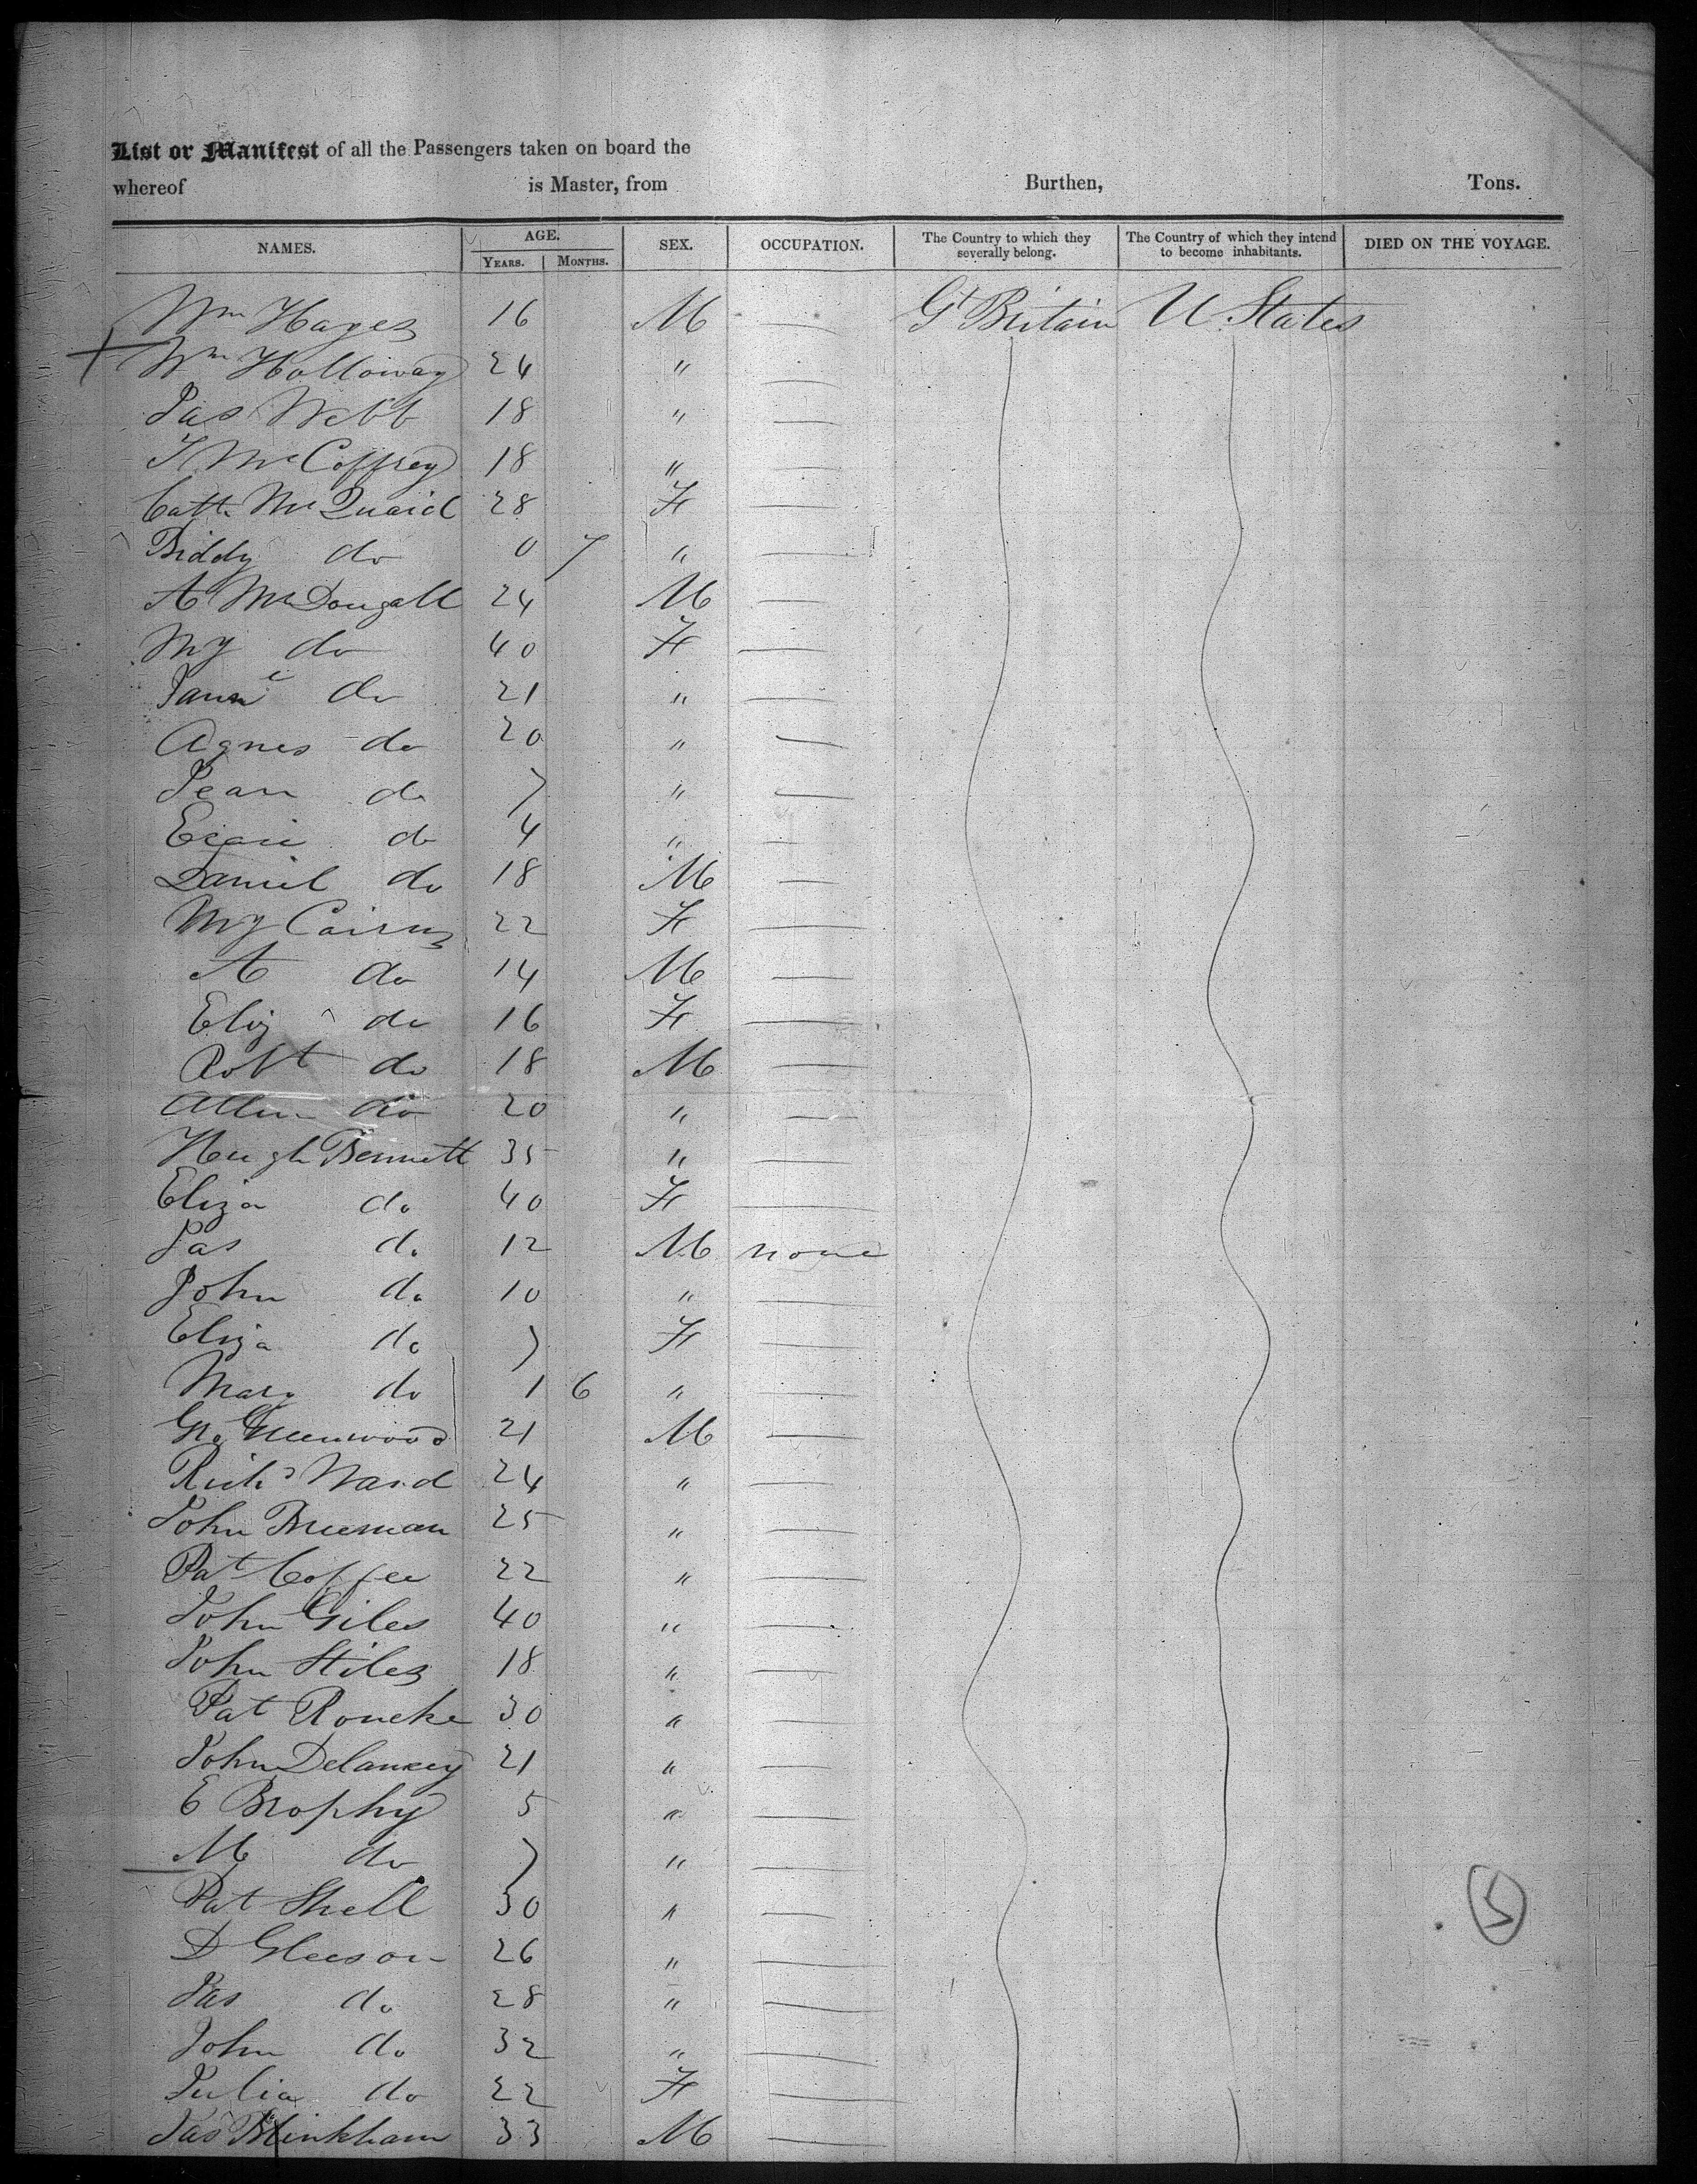 List or Manifest of all the Passengers taken on board the
whereof is Master, from Burthen, Tons.
NAMES. AGE. SEX. OCCUPATION. The Country to which they severally belong. The Country of which they intend to become inhabitants. DIED ON THE VOYAGE.
YEARS. MONTHS.
Wm Hayes 16 M — Gt Britain U. States
Wm Holloway 24 " —
Jas Webb 18 " —
T McCoffrey 18 " —
Cath McQuaid 28 F —
Biddy do 0 7 " —
A McDougall 24 M —
My do 40 F —
do 21 " —
Agnes do 20 " —
Jean do 7 " —
do 4 " —
Daniel do 18 M —
My Cairns 22 F —
A do 14 M —
Eliz do 16 F —
Robt do 18 M —
Allen do 20 " —
Hugh Bennett 35 " —
Eliza do 40 F —
Jas do 12 M none
John do 10 " —
Eliza do 7 F —
Mary do 1 6 " —
Greenwood 21 M —
Richd Ward 24 " —
John 25 " —
Pat Coffee 22 " —
John Giles 40 " —
John Stiles 18 " —
Pat Rourke 30 " —
John Delancey 21 " —
E Brophy 5 " —
M do 7 " —
Pat Shell 30 " —
D Gleeson 26 " —
Jas do 28 " —
John do 32 " —
Julia do 22 F —
Jas 33 M —
5